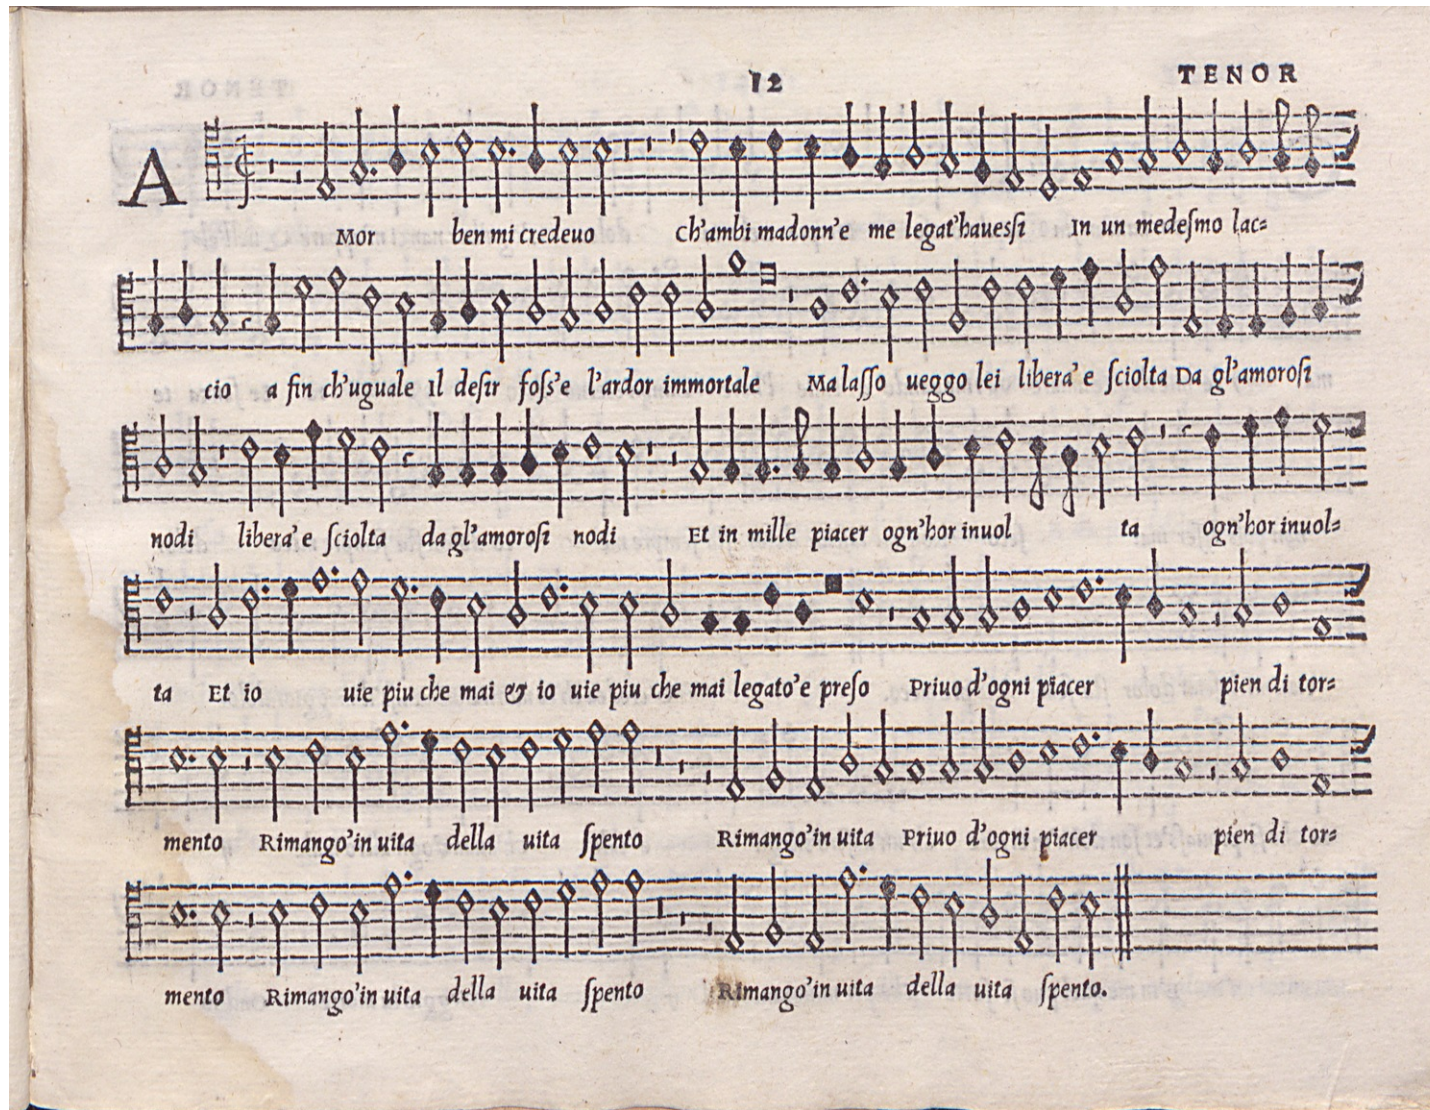 12
TENOR
AMor ben mi credeuo Ch'ambi madonn'e me legat'hauesſi In un medeſmo lac=
cio a fin ch'uguale Il deſir foſs'e l'ardor immortale Ma laſſo ueggo lei libera'e ſciolta Da gl'amoroſi
nodi libera'e ſciolta da gl'amoroſi nodi Et in mille piacer ogn'hor inuol ta ogn'hor inuol=
ta Et io uie piu che mai & io uie piu che mai legato'e preſo Priuo d'ogni piacer pien di tor=
mento Rimango'in uita della uita ſpento Rimango'in uita Priuo d'ogni piacer pien di tor=
mento Rimango'in uita della uita ſpento Rimango'in uita della uita ſpento.